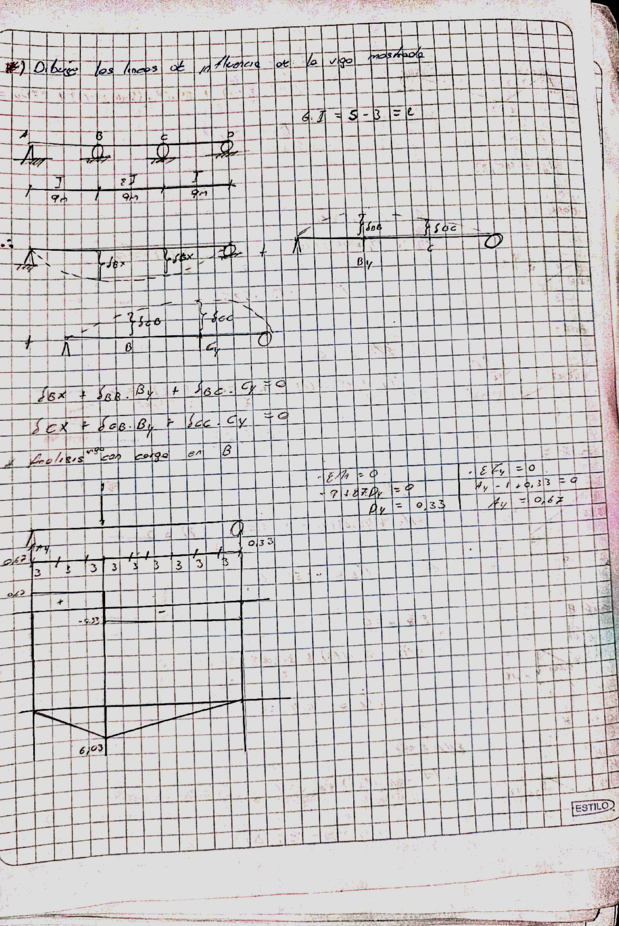 *) Dibujar las lineas de influencia de la viga mostrada
G.I = 5 - 3 = 2
A B C D
I 2I I
9m 9m 9m
∴
δBX δBX + δBB δBC
By C
+ δCB δCC
B Cy
δBX + δBB . By + δBC . Cy = 0
δCX + δCB . By + δCC . Cy = 0
* Analisis viga con carga en B
- ΣM = 0
- 9 + 27 Dy = 0
Dy = 0,33
- ΣFy = 0
Ay - 1 + 0,33 = 0
Ay = 0,67
1
Ay
0,67 0,33
3 3 3 3 3 3 3 3 3
0,67
+ -
-0,33
6,03
ESTILO